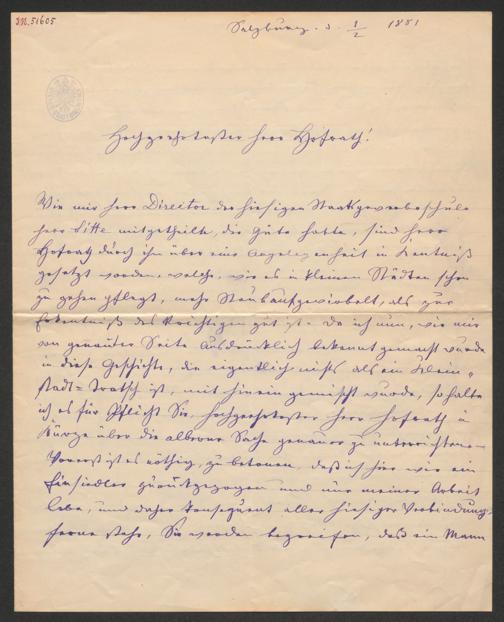 IN. 51605
Salzburg. d. 1/2 1881
Hochgeehrtester Herr Hofrath!
Wie mir Herr Director der hiesigen Staatsgewerbeschule
Herr Sitte mitzutheilen, die Güte hatte, sind Herr
Hofrath durch ihn über eine Angelegenheit in Kentniß
gesetzt worden, welche, wie es in kleinen Städten schon
zu gehen pflegt, mehr Staub aufgewirbelt, als zur
Erkentniß des Richtigen gut ist. Da ich nun, wie mir
von genannter Seite ausdrücklich bekannt gemacht wurde
in diese Geschichte, die eigentlich nichts als ein Klein-
stadt-Tratsch ist, mit hinein gemischt wurde, so halte
ich es für Pflicht Sie, hochgeehrtester Herr Hofrath in
Kürze über die alberne Sache genauer zu unterrichten.
Vorerst ist es nöthig, zu betonen, daß ich hier wie ein
Einsiedler zurückgezogen und nur meiner Arbeit
lebe, und daher consequent aller hiesiger Verbindung
ferne stehe, Sie werden begreifen, daß ein Mann